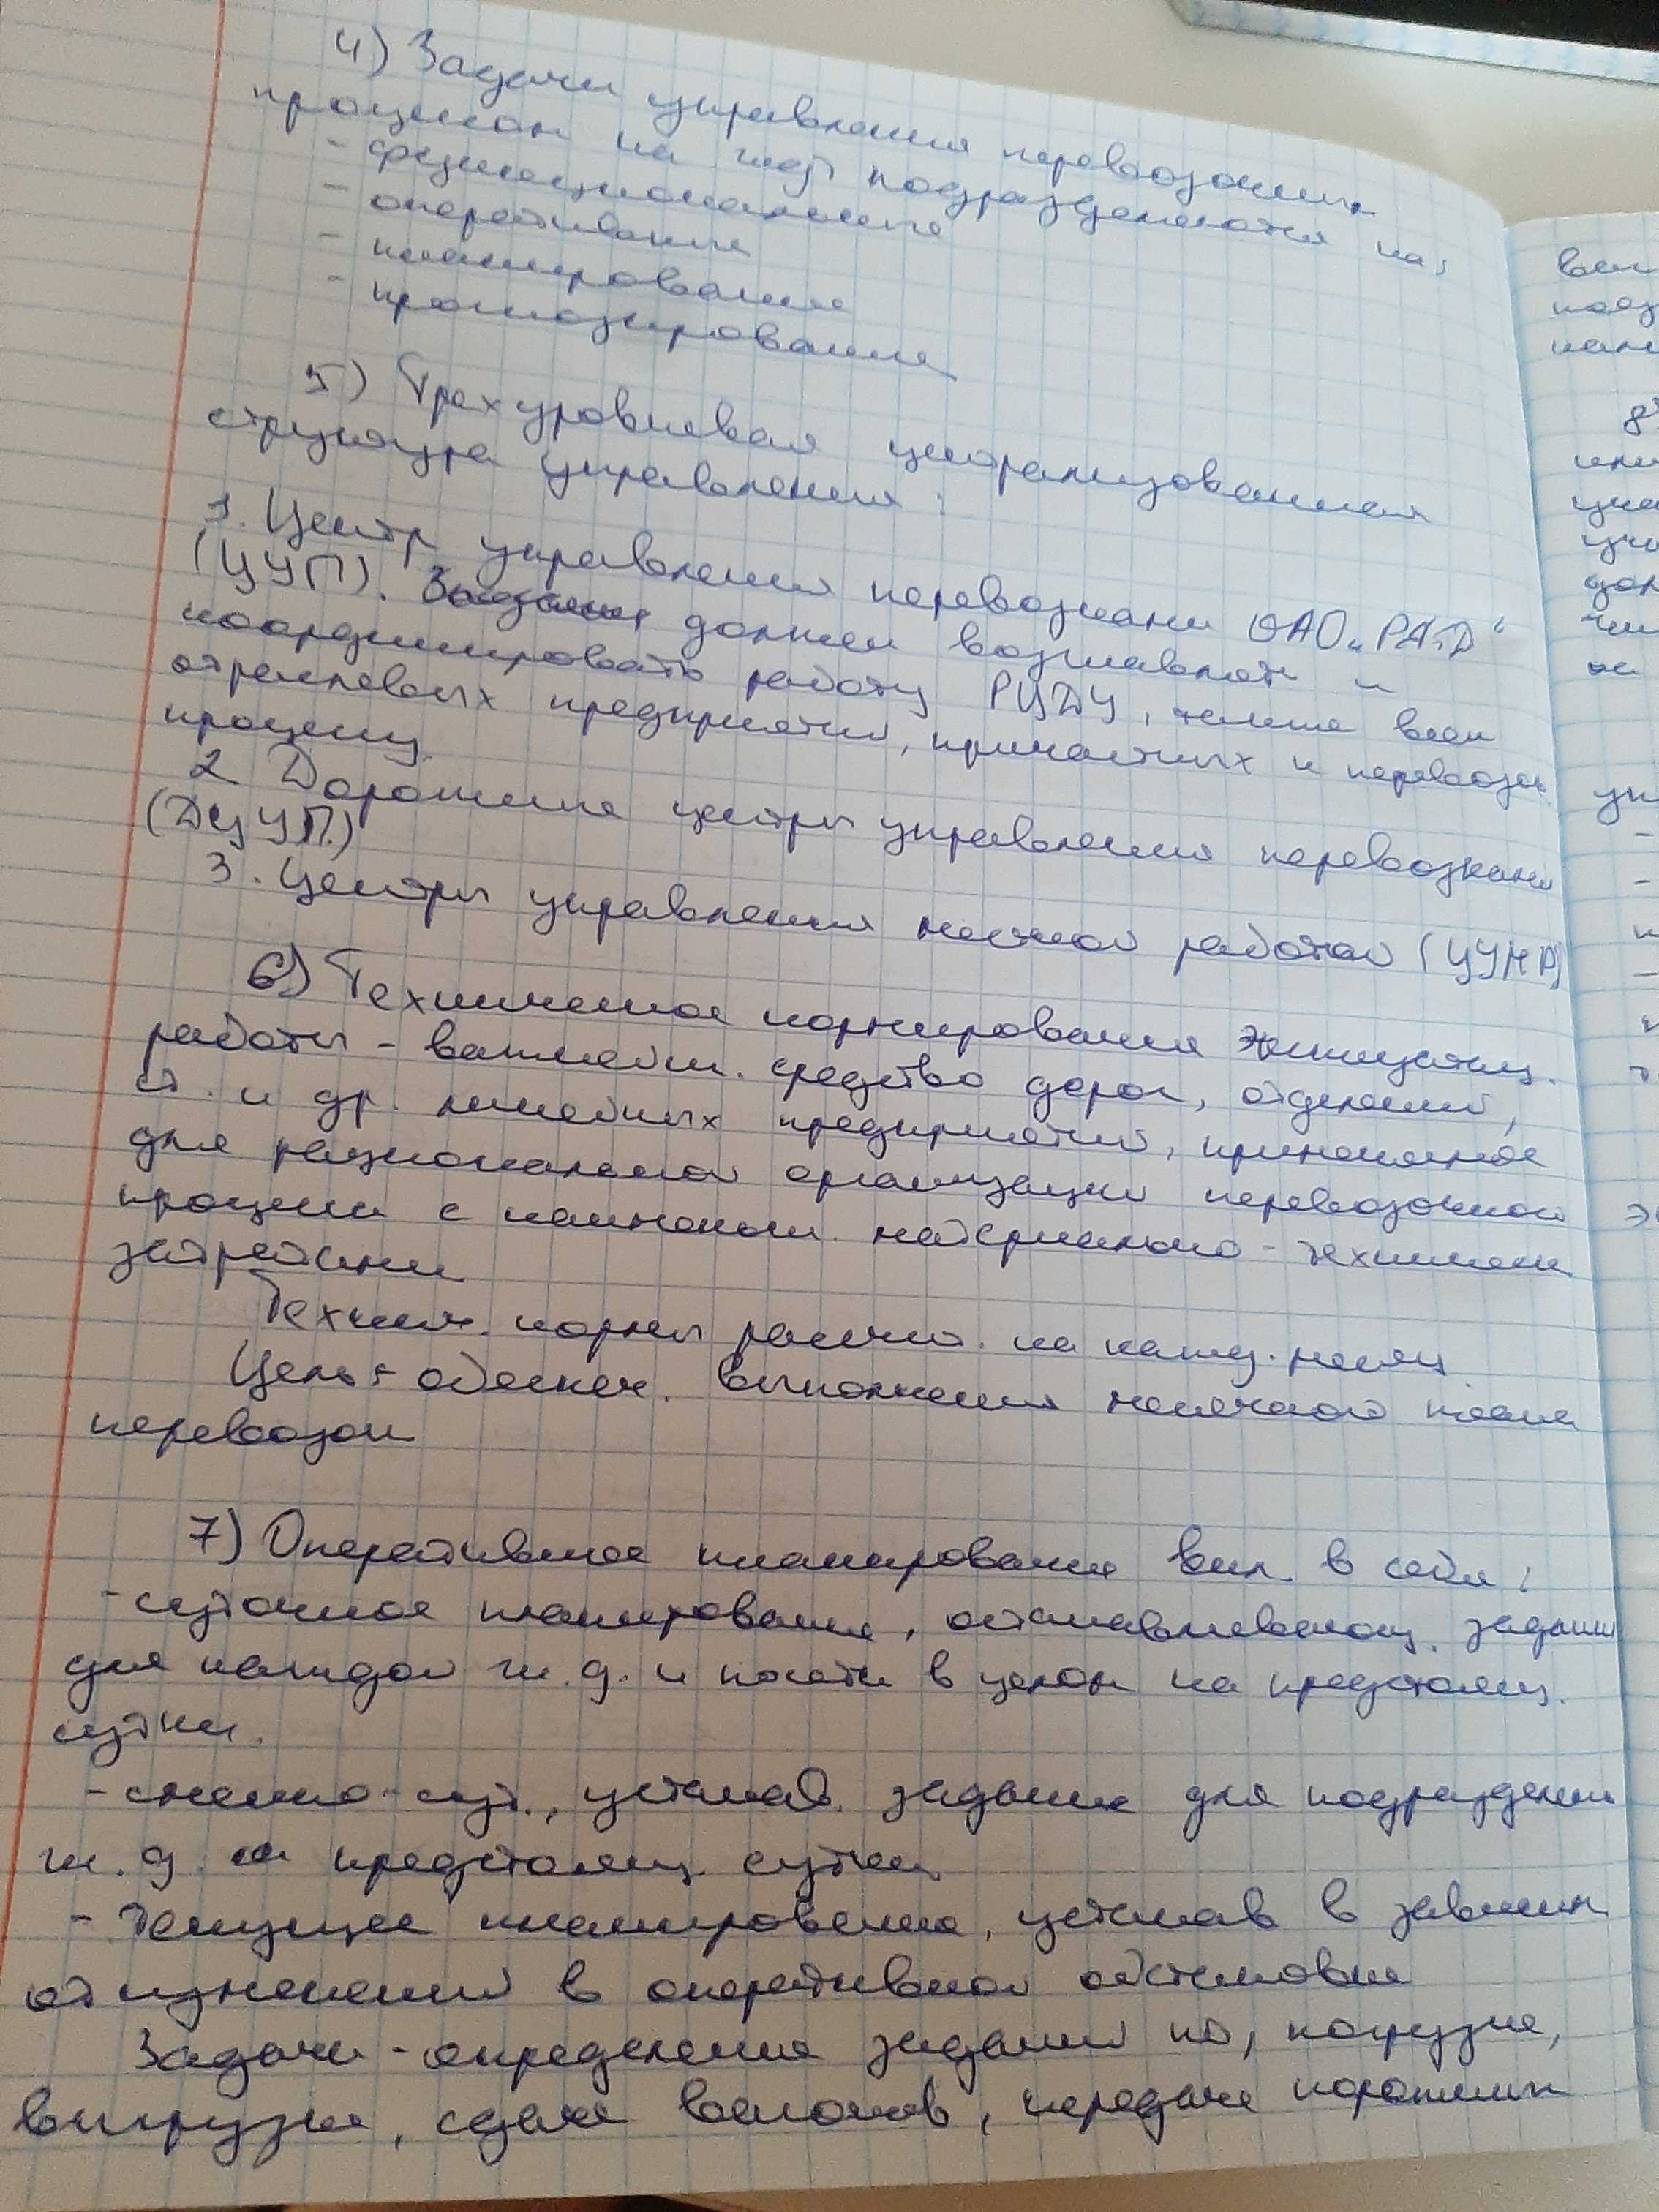 4) Задачи управления перевозочным
процессом на жд подразделяются на:
- функциональные
- оперативные
- планирование
- прогнозирование
5) Трехуровневая централизованная
структура управления:
1. Центр управления перевозками ОАО „РЖД“
(ЦУП). должен возглавлять и
координировать работу РЦДУ, также всех
отраслевых предприятий, причастных к перевозоч.
процессу.
2 Дорожные центры управления перевозками
(ДЦУП)
3. Центры управления местной работой (ЦУМР)
6) Техническое нормирование эксплуатац.
работы - важнейш. средство дорог, отделений,
ст. и др. линейных предприятий, применяемое
для рациональной организации перевозочного
процесса с наименьш. материально-техническ
затратами
Технич. нормы рассчит. на кажд. месяц.
Цель: обеспеч. выполнения месячного плана
перевозок
7) Оперативное планирование вкл. в себя:
- суточное планирование, останавливающ. задания
для каждой ж.д. и по сети в целом на предстоящ.
сутки.
- сменно-сут., устанав. задание для подразделени
ж.д. на предстоящ. сутки
- Текущее планирование, устанав в зависим
от изменений в оперативной обстановке
Задачи - определения заданий по, погрузке,
выгрузке, сдаче вагонов, передаче порожних
всех